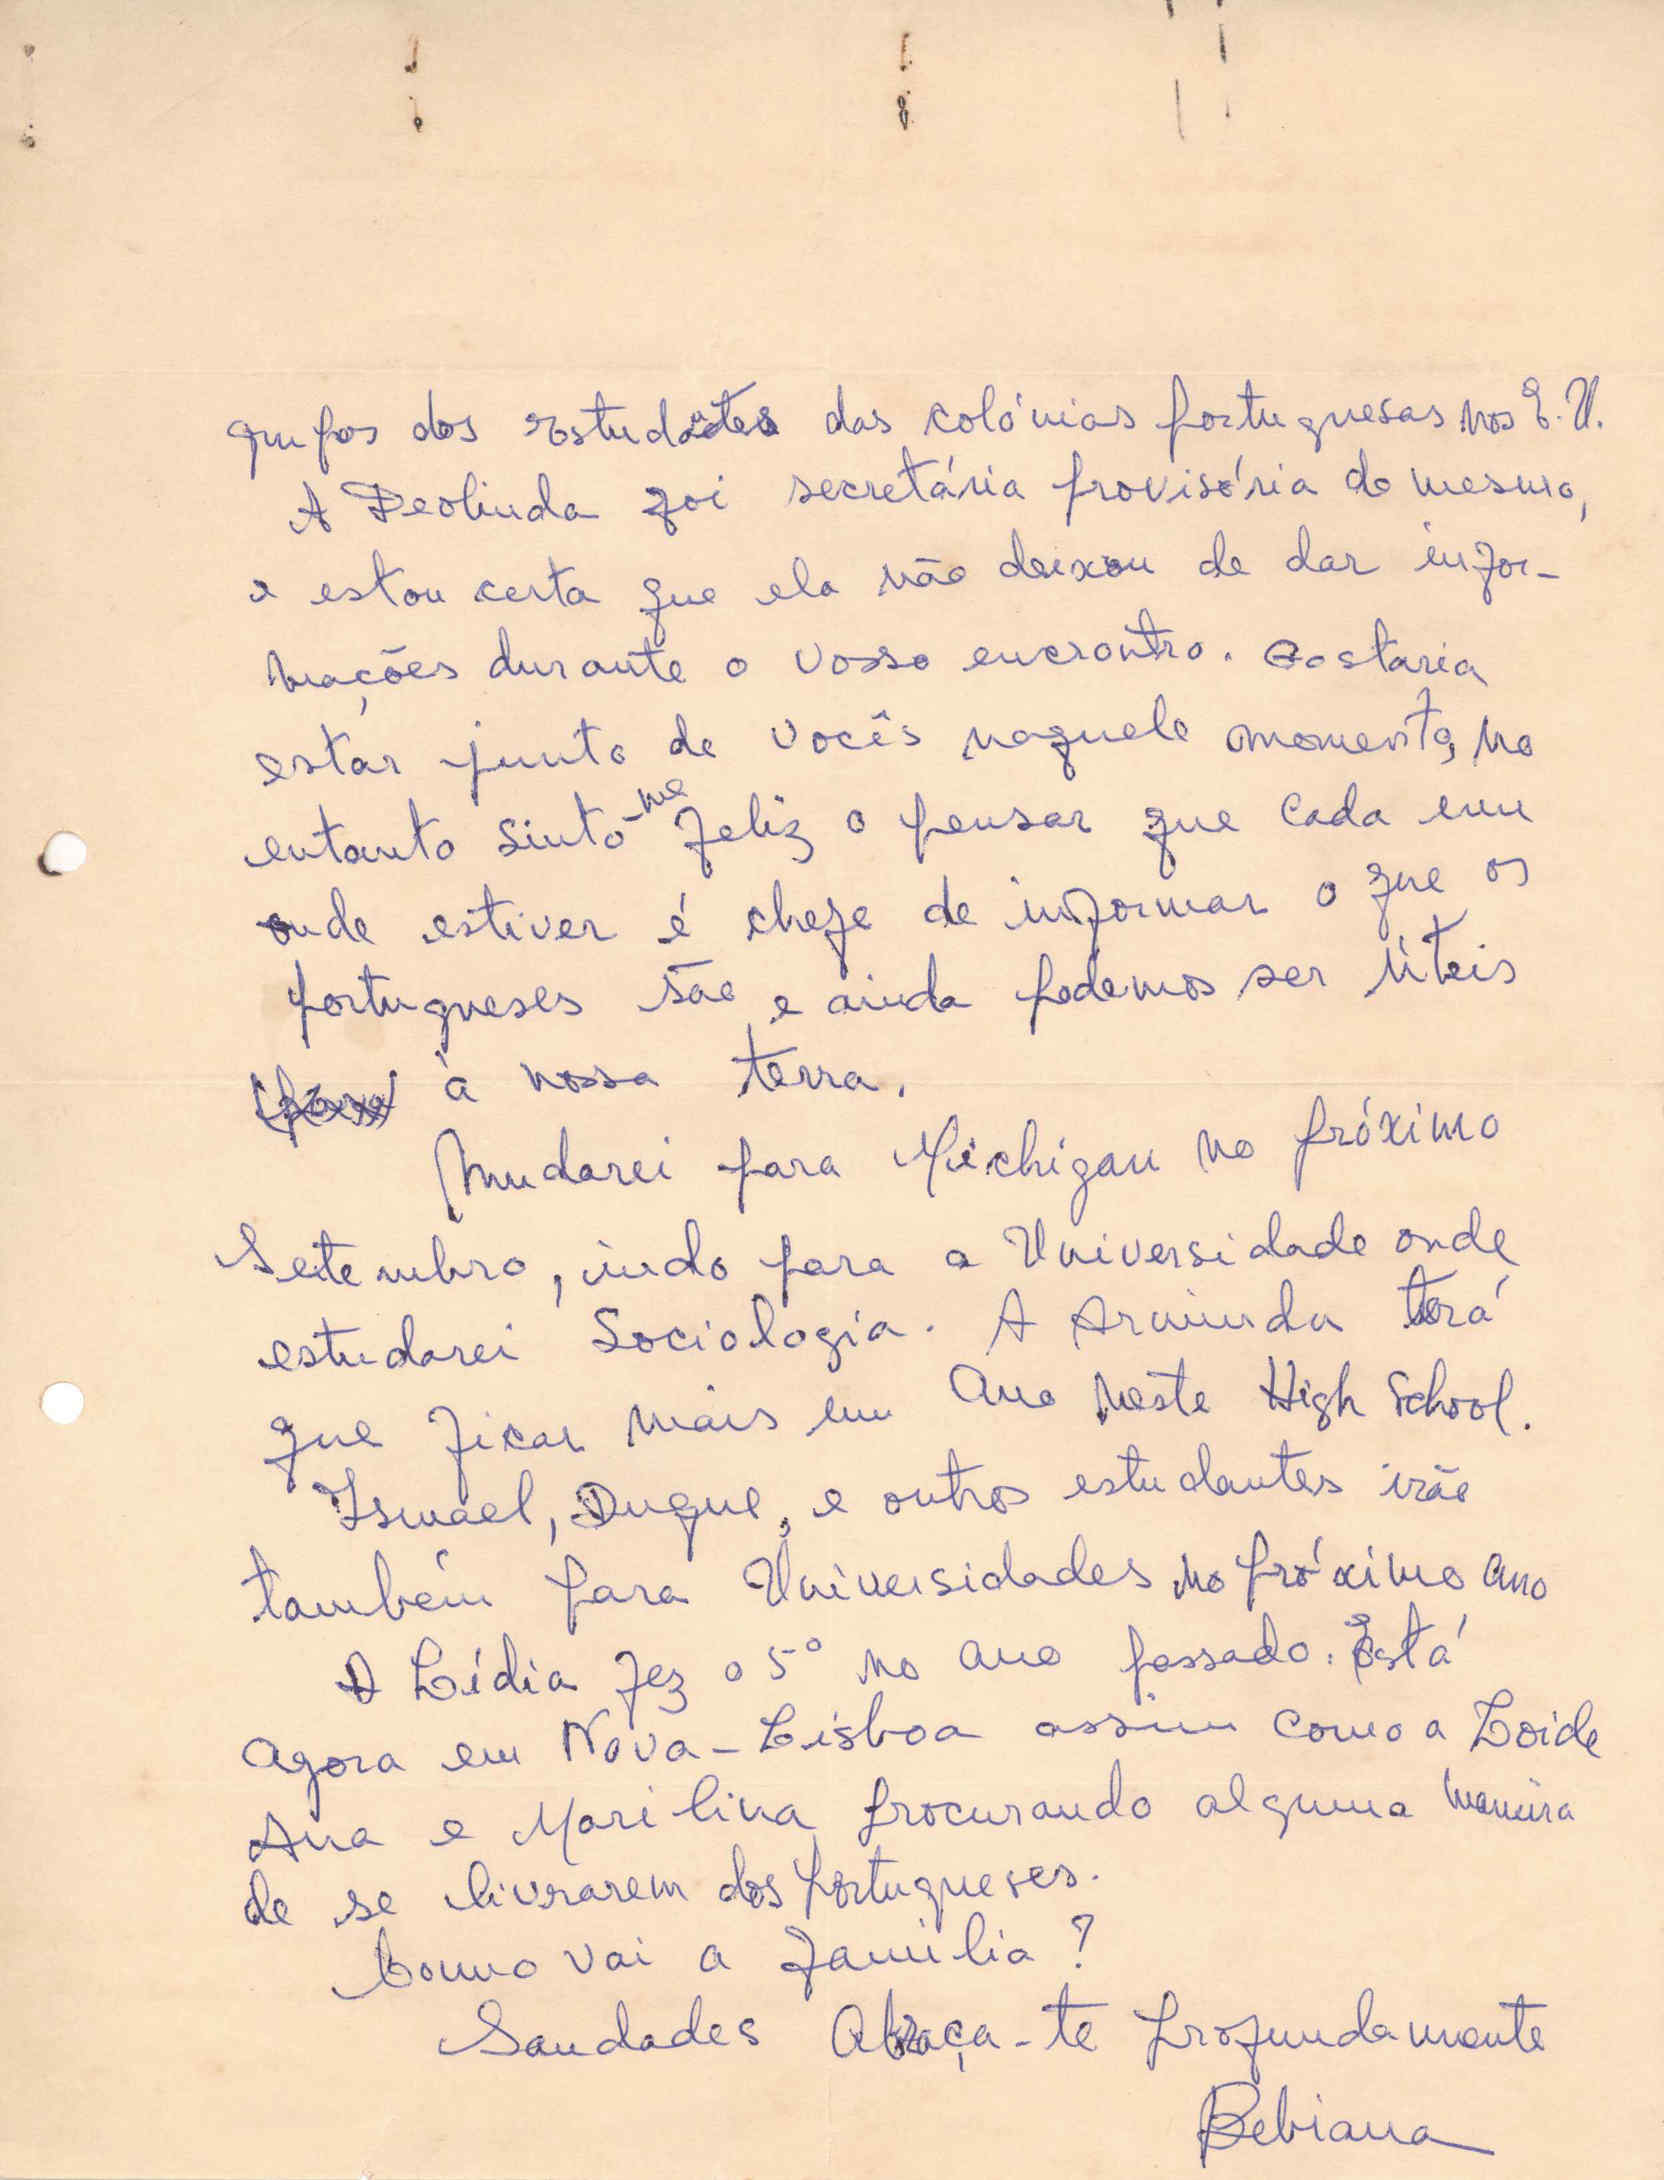 grupos dos estudantes das colónias portuguesas nos E.U.
A Deolinda foi secretária provisória do mesmo,
e estou certa que ela não deixou de dar infor-
mações durante o vosso encrontro. Gostaria
estar junto de vocês naquele momento, no
entanto sinto-me feliz o pensar que cada um
onde estiver é chefe de informar o que os
portugueses são, e ainda podemos ser úteis
à nossa terra.
Mudarei para Michigan no próximo
Setembro, indo para a Universidade onde
estudarei Sociologia. A Arminda terá
que ficar mais um ano neste High School.
Ismael, Duque, e outros estudantes irão
também para Universidades no próximo ano
A Lídia fez o 5º no ano passado. Está
agora em Nova-Lisboa assim como a Loide
Ana e Marilina procurando alguma maneira
de se livrarem dos portugueses.
Como vai a familia?
Saudades Abraça-te profundamente
Bebiana